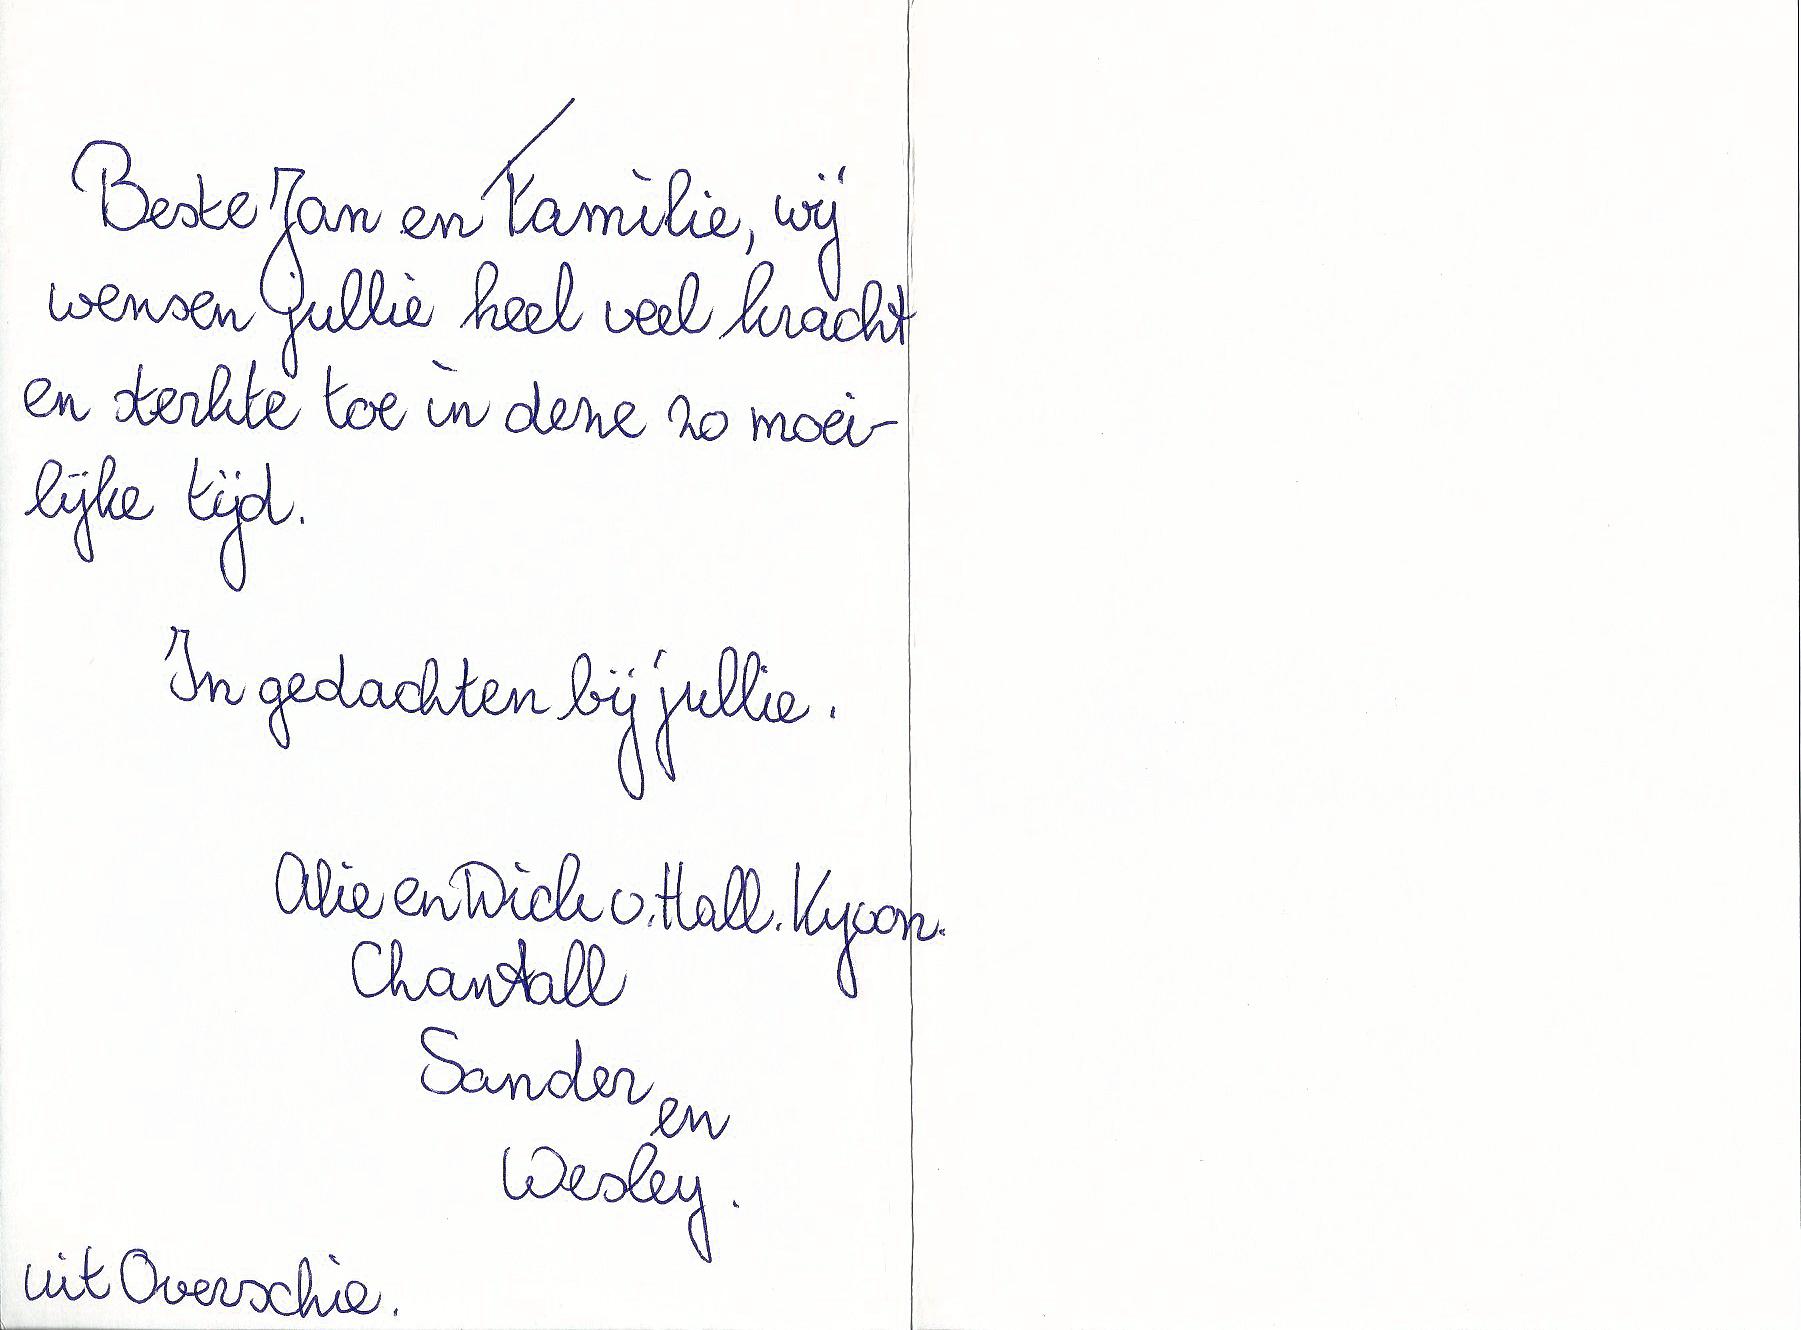 Beste Jan en Familie, wij
wensen jullie heel veel kracht
en sterkte toe in deze zo moei-
lijke tijd.
In gedachten bij jullie.
Alie en Dick v. Hall. Kyoon.
Chantall
Sander
en
Wesley.
uit Overschie.